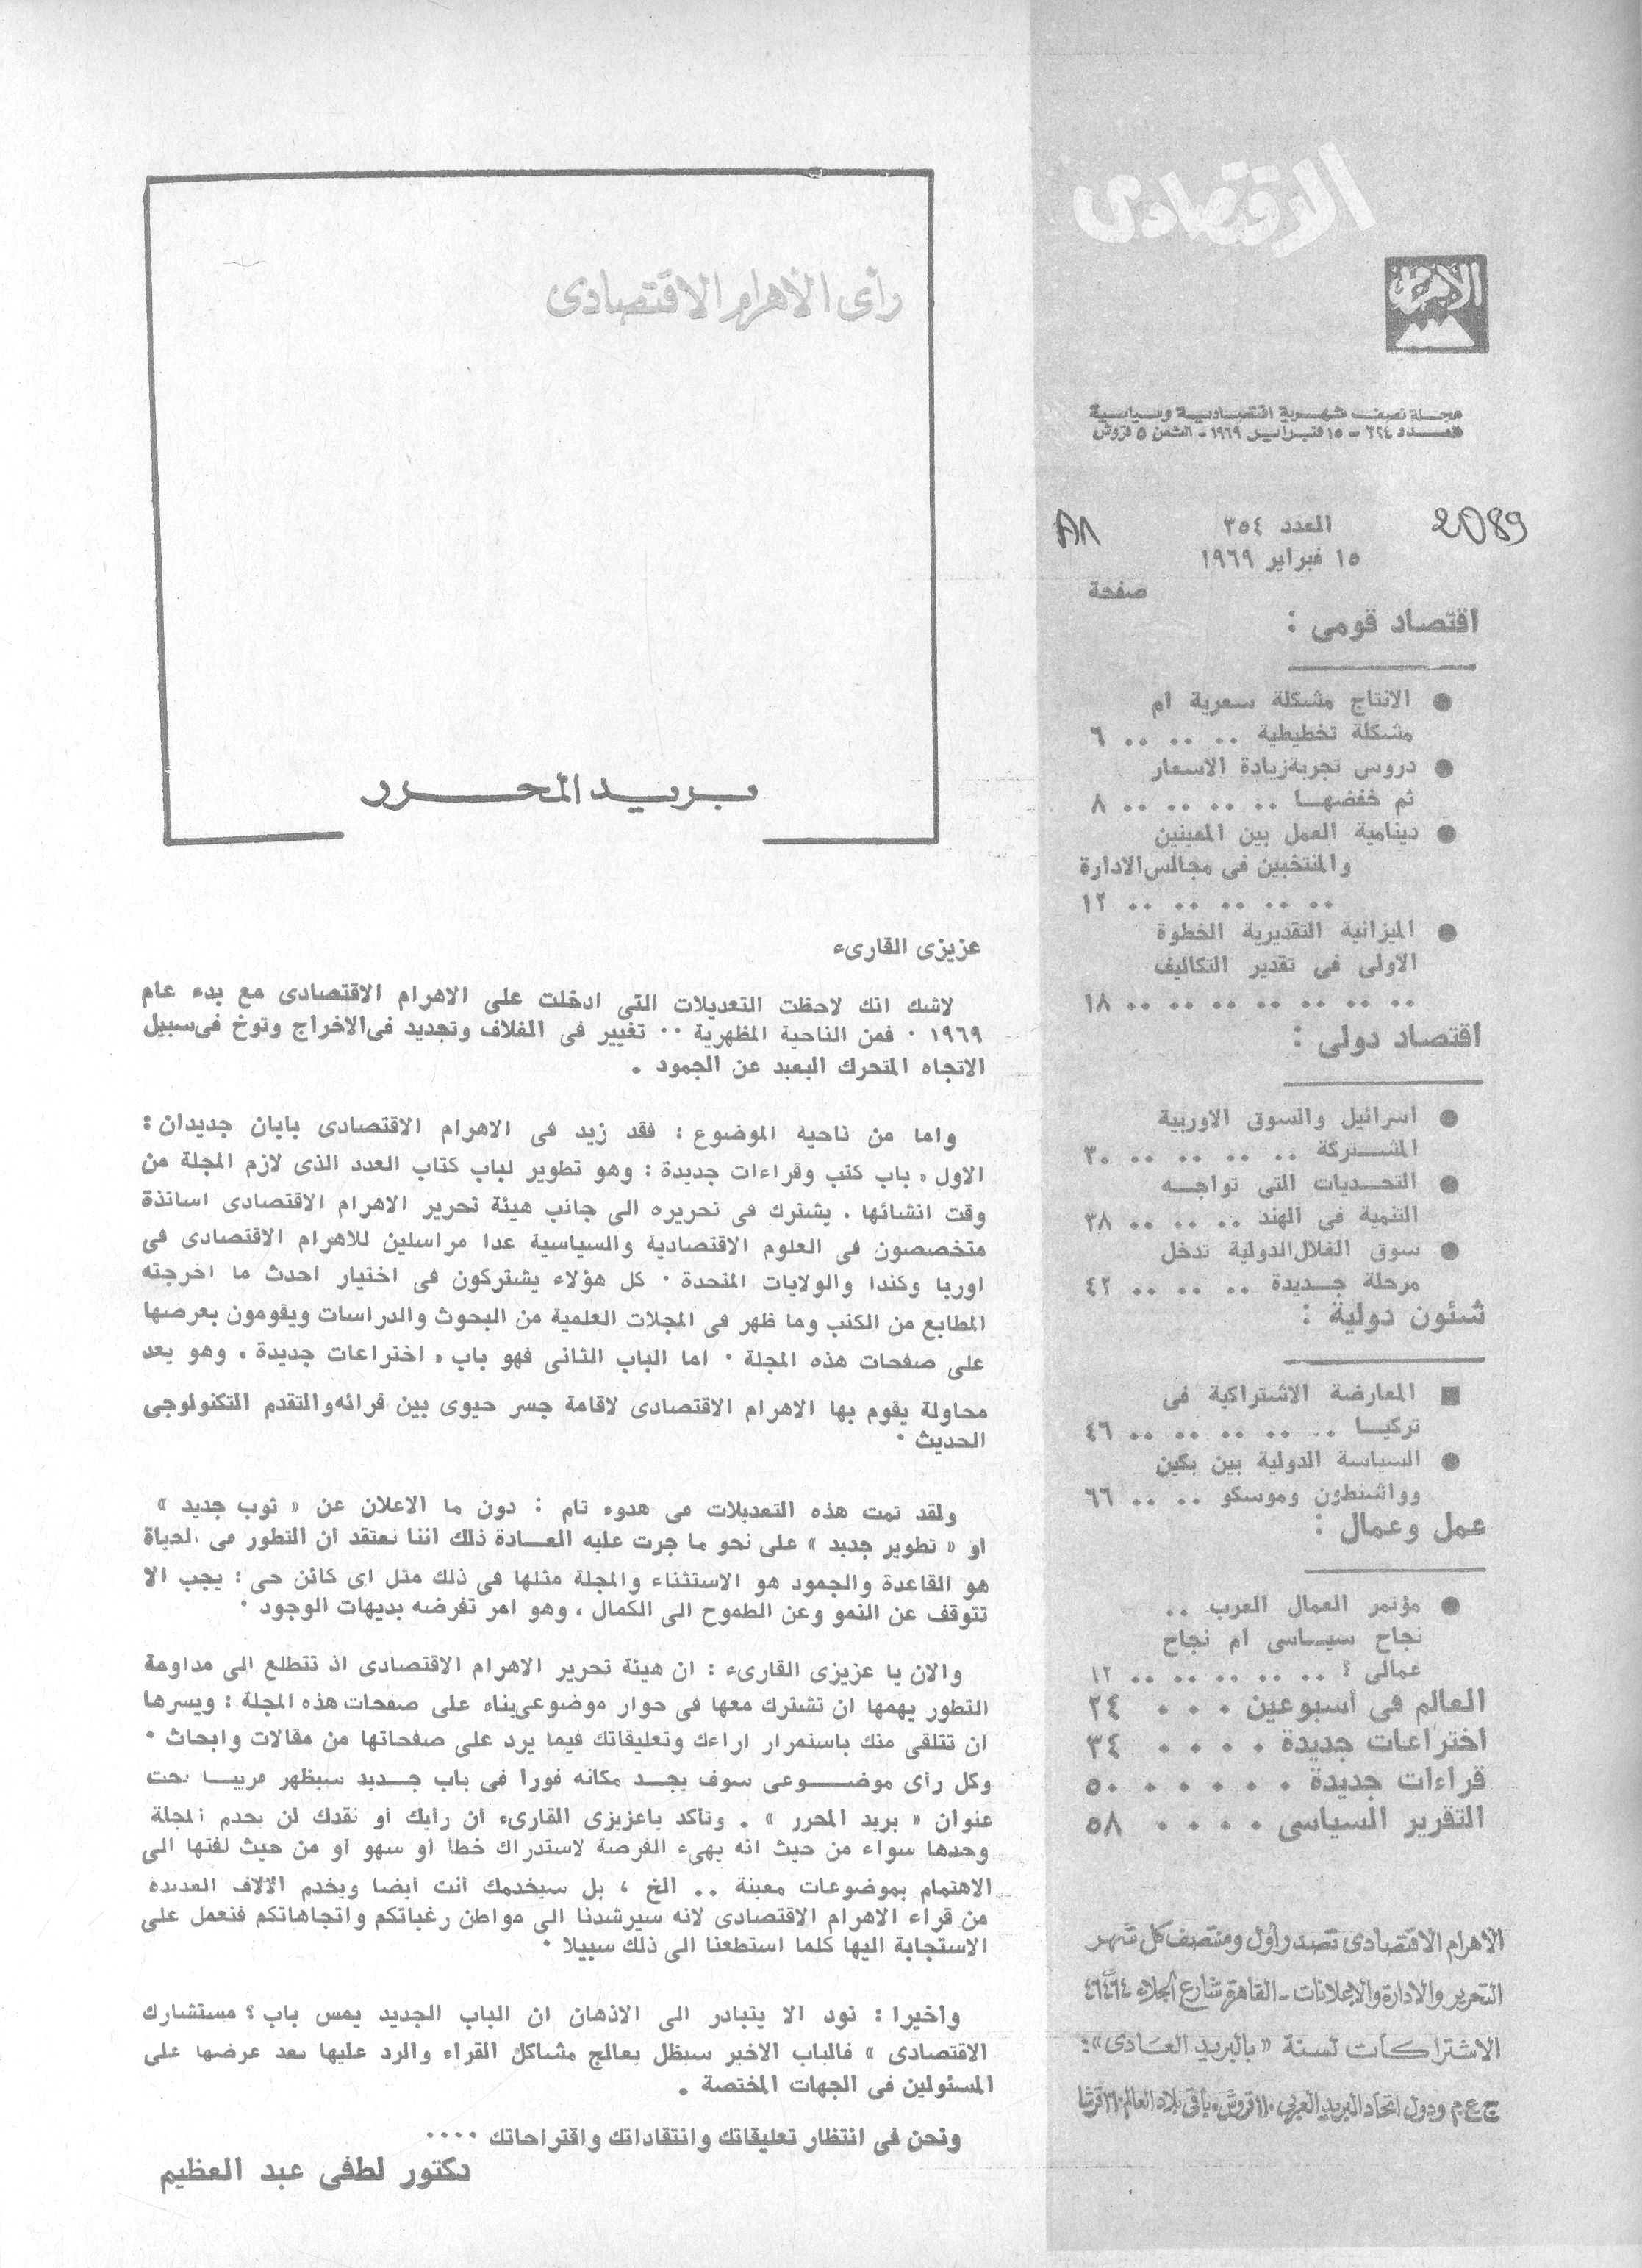 الاقتصادى
الاهرام
مجلة نصف شهرية اقتصادية وسياسية
العدد ٣٢٤ - ١٥ فبراير ١٩٦٩ - الثمن ٥ قروش
2089
العدد ٣٥٤
١٥ فبراير ١٩٦٩
صفحة
اقتصاد قومى :
● الانتاج مشكلة سعرية ام
مشكلة تخطيطية .. .. .. ٦
● دروس تجربة زيادة الاسعار
ثم خفضها .. .. .. .. ٨
● دينامية العمل بين المعينين
والمنتخبين فى مجالس الادارة
.. .. .. .. .. ١٢
● الميزانية التقديرية الخطوة
الاولى فى تقدير التكاليف
.. .. .. .. .. .. .. ١٨
اقتصاد دولى :
● اسرائيل والسوق الاوربية
المشتركة .. .. .. .. ٣٠
● التحديات التى تواجه
التنمية فى الهند .. .. .. ٣٨
● سوق الغلال الدولية تدخل
مرحلة جديدة .. .. .. ٤٢
شئون دولية :
■ المعارضة الاشتراكية فى
تركيا .. .. .. .. .. ٤٦
● السياسة الدولية بين بكين
وواشنطون وموسكو .. .. ٦٦
عمل وعمال :
● مؤتمر العمال العرب ..
نجاح سياسى ام نجاح
عمالى ؟ .. .. .. .. .. ١٢
العالم فى أسبوعين . . . ٢٤
اختراعات جديدة . . . . ٣٤
قراءات جديدة . . . . . . ٥٠
التقرير السياسى . . . . ٥٨
الاهرام الاقتصادى تصدر أول ومنتصف كل شهر
التحرير والادارة والاعلانات - القاهرة شارع الجلاء ت ٤٦٤٦٤
الاشتراكات لسنة «بالبريد العادى» :
ج ع م ودول اتحاد البريد العربى ١١٠ قروش، باقى بلاد العالم ٣٦٠ قرشا
رأى الأهرام الاقتصادى
بريد المحرر
عزيزى القارىء
لاشك انك لاحظت التعديلات التى ادخلت على الاهرام الاقتصادى مع بدء عام
١٩٦٩ . فمن الناحية المظهرية .. تغيير فى الغلاف وتجديد فى الاخراج وتوخ فى سبيل
الاتجاه المتحرك البعيد عن الجمود .
واما من ناحية الموضوع : فقد زيد فى الاهرام الاقتصادى بابان جديدان :
الاول ، باب كتب وقراءات جديدة : وهو تطوير لباب كتاب العدد الذى لازم المجلة من
وقت انشائها . يشترك فى تحريره الى جانب هيئة تحرير الاهرام الاقتصادى اساتذة
متخصصون فى العلوم الاقتصادية والسياسية عدا مراسلين للاهرام الاقتصادى فى
اوربا وكندا والولايات المتحدة . كل هؤلاء يشتركون فى اختيار احدث ما اخرجته
المطابع من الكتب وما ظهر فى المجلات العلمية من البحوث والدراسات ويقومون بعرضها
على صفحات هذه المجلة . اما الباب الثانى فهو باب ، اختراعات جديدة ، وهو يعد
محاولة يقوم بها الاهرام الاقتصادى لاقامة جسر حيوى بين قرائه والتقدم التكنولوجى
الحديث .
ولقد تمت هذه التعديلات فى هدوء تام : دون ما الاعلان عن « ثوب جديد »
أو « تطوير جديد » على نحو ما جرت عليه العادة ذلك اننا نعتقد ان التطور فى الحياة
هو القاعدة والجمود هو الاستثناء والمجلة مثلها فى ذلك مثل اى كائن حى : يجب الا
تتوقف عن النمو وعن الطموح الى الكمال ، وهو امر تفرضه بديهات الوجود .
والان يا عزيزى القارىء : ان هيئة تحرير الاهرام الاقتصادى اذ تتطلع الى مداومة
التطور يهمها ان تشترك معها فى حوار موضوعى بناء على صفحات هذه المجلة : ويسرها
ان تتلقى منك باستمرار اراءك وتعليقاتك فيما يرد على صفحاتها من مقالات وابحاث .
وكل رأى موضوعى سوف يجد مكانه فورا فى باب جديد سيظهر قريبا تحت
عنوان « بريد المحرر » . وتأكد ياعزيزى القارىء ان رأيك أو نقدك لن يخدم المجلة
وحدها سواء من حيث انه يهيء الفرصة لاستدراك خطأ أو سهو أو من حيث لفتها الى
الاهتمام بموضوعات معينة .. الخ ، بل سيخدمك أنت أيضا ويخدم الالاف العديدة
من قراء الاهرام الاقتصادى لانه سيرشدنا الى مواطن رغباتكم واتجاهاتكم فنعمل على
الاستجابة اليها كلما استطعنا الى ذلك سبيلا .
وأخيرا : نود الا يتبادر الى الاذهان ان الباب الجديد يمس باب ؟ مستشارك
الاقتصادى » فالباب الاخير سيظل يعالج مشاكل القراء والرد عليها بعد عرضها على
المسئولين فى الجهات المختصة .
ونحن فى انتظار تعليقاتك وانتقاداتك واقتراحاتك ....
دكتور لطفى عبد العظيم